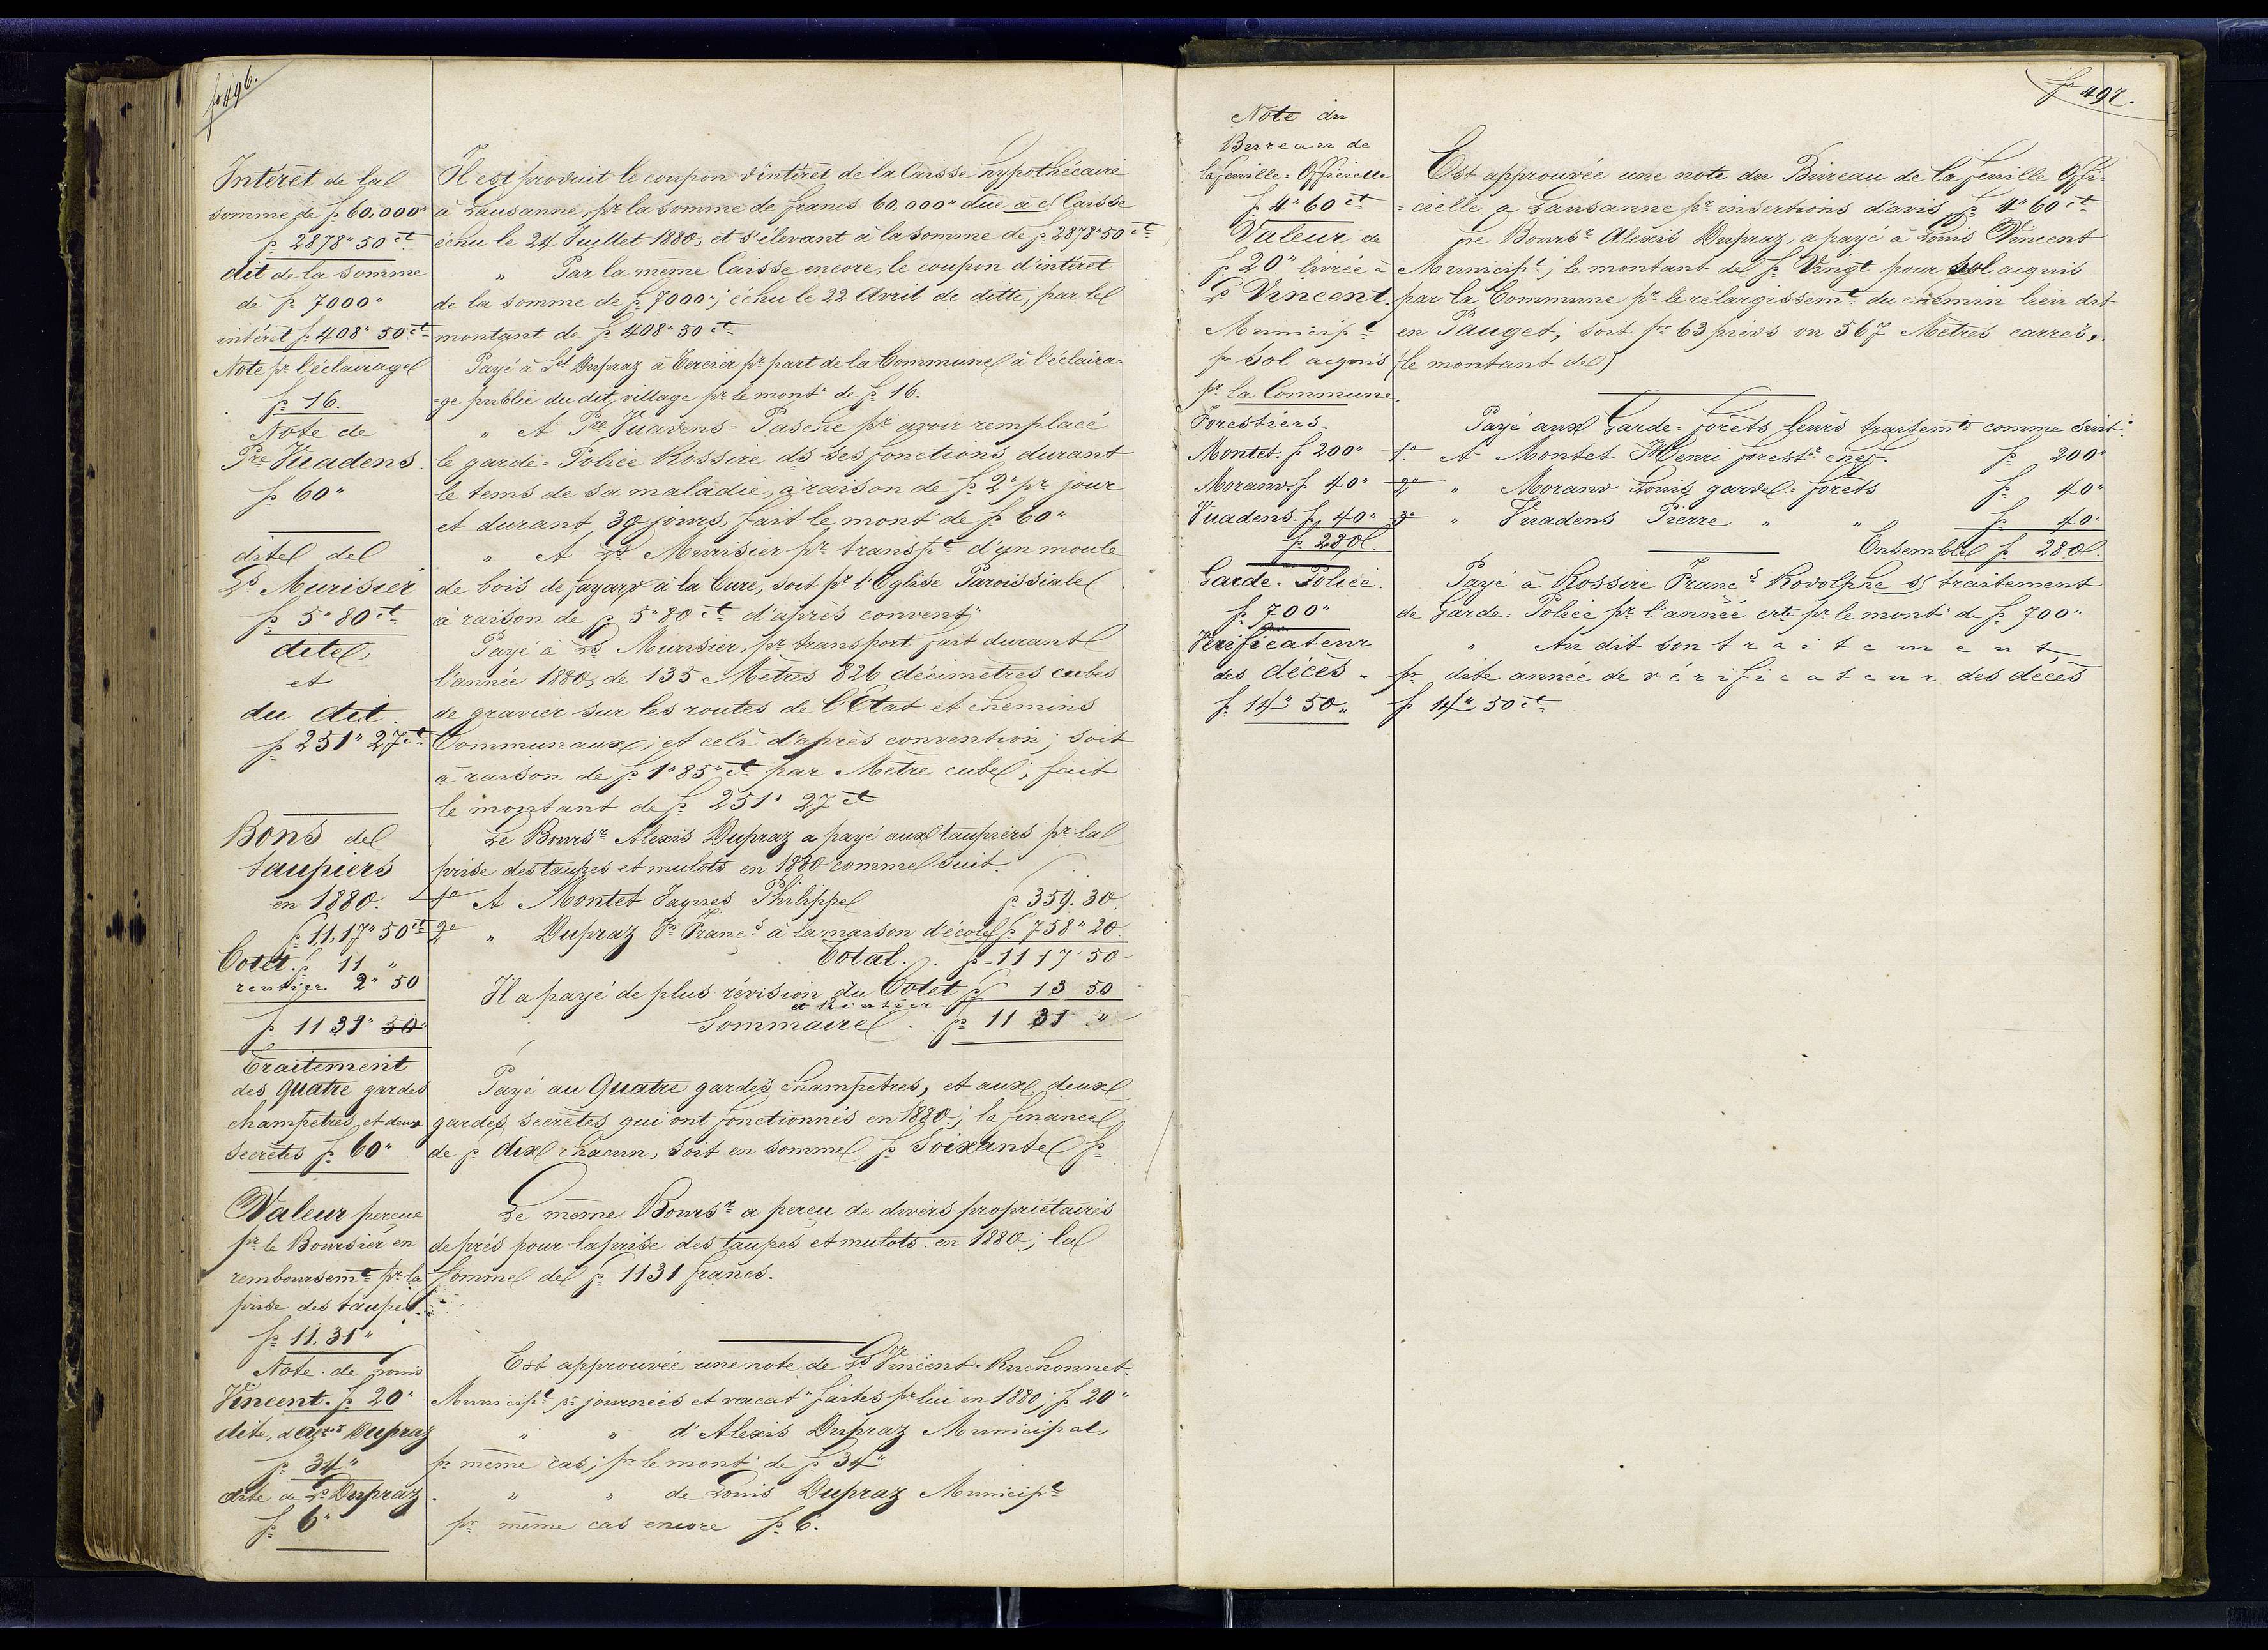 fo 496.
Intéret de la
somme de f. 60,000"
f. 2878" 50 ct
dit de la somme
de f. 7000"
intérêt f. 408" 50 ct
Note pr l'éclairage
f. 16.
Note de
Pre Vuadens.
f. 60"
dite de
Ls Murisier
f. 5" 80 ct
dite,
et
du dit.
f. 251" 27 ct
Bons de
taupiers
en 1880.
f. 11,17" 50 ct
Cotet. f. 11 "
rentier. 2" 50
f. 1131" 50
Traitement
des quatre gardes
champetres, et deux
secrètes f. 60"
Valeur perçue
pr le Boursier en
remboursemt pr la
prise des taupes
f. 11.31"
Note de Louis
Vincent. f. 20"
dite, d'Alexis Dupraz
f. 34"
dite de Ls Dupraz.
f. 6"
Il est produit le coupon d'intéret de la Caisse hypothécaire
à Lausanne, pr la somme de francs 60,000" due à d Caisse
échu le 24 Juillet 1880, et s'élevant à la somme de f. 2878" 50 ct
" Par la même Caisse encore, le coupon d'intéret
de la somme de f. 7000", échu le 22 Avril de dette, par le
montant de f. 408" 50 ct
Payé à Dupraz à pr part de la Commune à l'éclaira=
=ge public du dit village pr le mont de f. 16.
" A Pre Vuadens=Pasche pr avoir remplacé
le garde=Police Rossire ds ses fonctions durant
le tems de sa maladie, à raison de f. 2" pr jour
et durant 30 jours, fait le mont de f. 60"
" A Ls Murisier pr transpt d'un moule
de bois de fayard à la Cure, soit pr l'Eglise Paroissiale
à raison de f. 5" 80 ct d'après convent
Payé à Ls Murisier, pr transport fait durant
l'année 1880, de 135 Mètres 826 décimètres cubes
de gravier sur les routes de l'Etat et chemins
Communaux, et celà d'après convention; soit
à raison de f. 1" 85" ct par Mètre cube; fait
le montant de f. 251" 27 ct
Le Boursr Alexis Dupraz a payé aux taupiers pr la
prise des taupes et mulots en 1880 comme suit.
1o A Montet Jaques Philippe f. 359.30.
2o " Dupraz Jn Francs à la maison d'école f. 758" 20.
Total. . f. 1117" 50
Il a payé de plus révision du Cotet f. 13 50
et Rentier
Sommaire . . f. 1131 "
Payé au Quatre gardes champetres, et aux deux
gardes secrètes qui ont fonctionnés en 1880; la finance
de f. dix chacun, soit en somme f. Soixante f.
Le même Boursr a perçu de divers propriétaires
de prés pour la prise des taupes et mulots en 1880; la
somme de f. 1131 francs.
Est approuvée une note de Ls Vincent=Ruchonnet
Municipl pr journées et vacat faites pr lui en 1880; f. 20"
" " d'Alexis Dupraz Municipal,
pr même cas; pr le mont de f. 34"
" " de Louis Dupraz Municipl
pr même cas encore f. 6.
fo 497.
Note du
Bureau de
la feuille=Officielle
f. 4" 60 ct
Valeur de
f. 20" livrée à
Ls Vincent.
Municipl
pr sol acquis
pr la Commune.
Forestiers.
Montet. f. 200"
Morand. f. 40"
Vuadens. f. 40"
f. 280.
Garde=Police.
f. 700"
Vérificateur
des décès.
f. 14" 50"
Est approuvée une note du Bureau de la feuille Offi=
=cielle à Lausanne pr insertions d'avis f. 4" 60 ct
Le Boursr Alexis Dupraz, a payé à Louis Vincent
Municipl; le montant de f. Vingt pour sol acquis
par la Commune pr le rélargissemt du chemin lieu dit
en Pauget, soit pr 63 pieds ou 567 Mètres carrés,
(le montant de)
Payé aux Garde=forêts leurs traitemts comme suit:
1o A Montet Henri chef. f. 200"
2o " Morand Louis garde=forêts f. 40"
3o " Vuadens Pierre " " f. 40"
Ensemble f. 280.
Payé à Rossire Francs Rodolphe s/ traitement
de Garde=Police pr l'année crte pr le mont de f. 700"
" Au dit son traitement
pr dite année de vérificateur des décès
f. 14" 50 ct